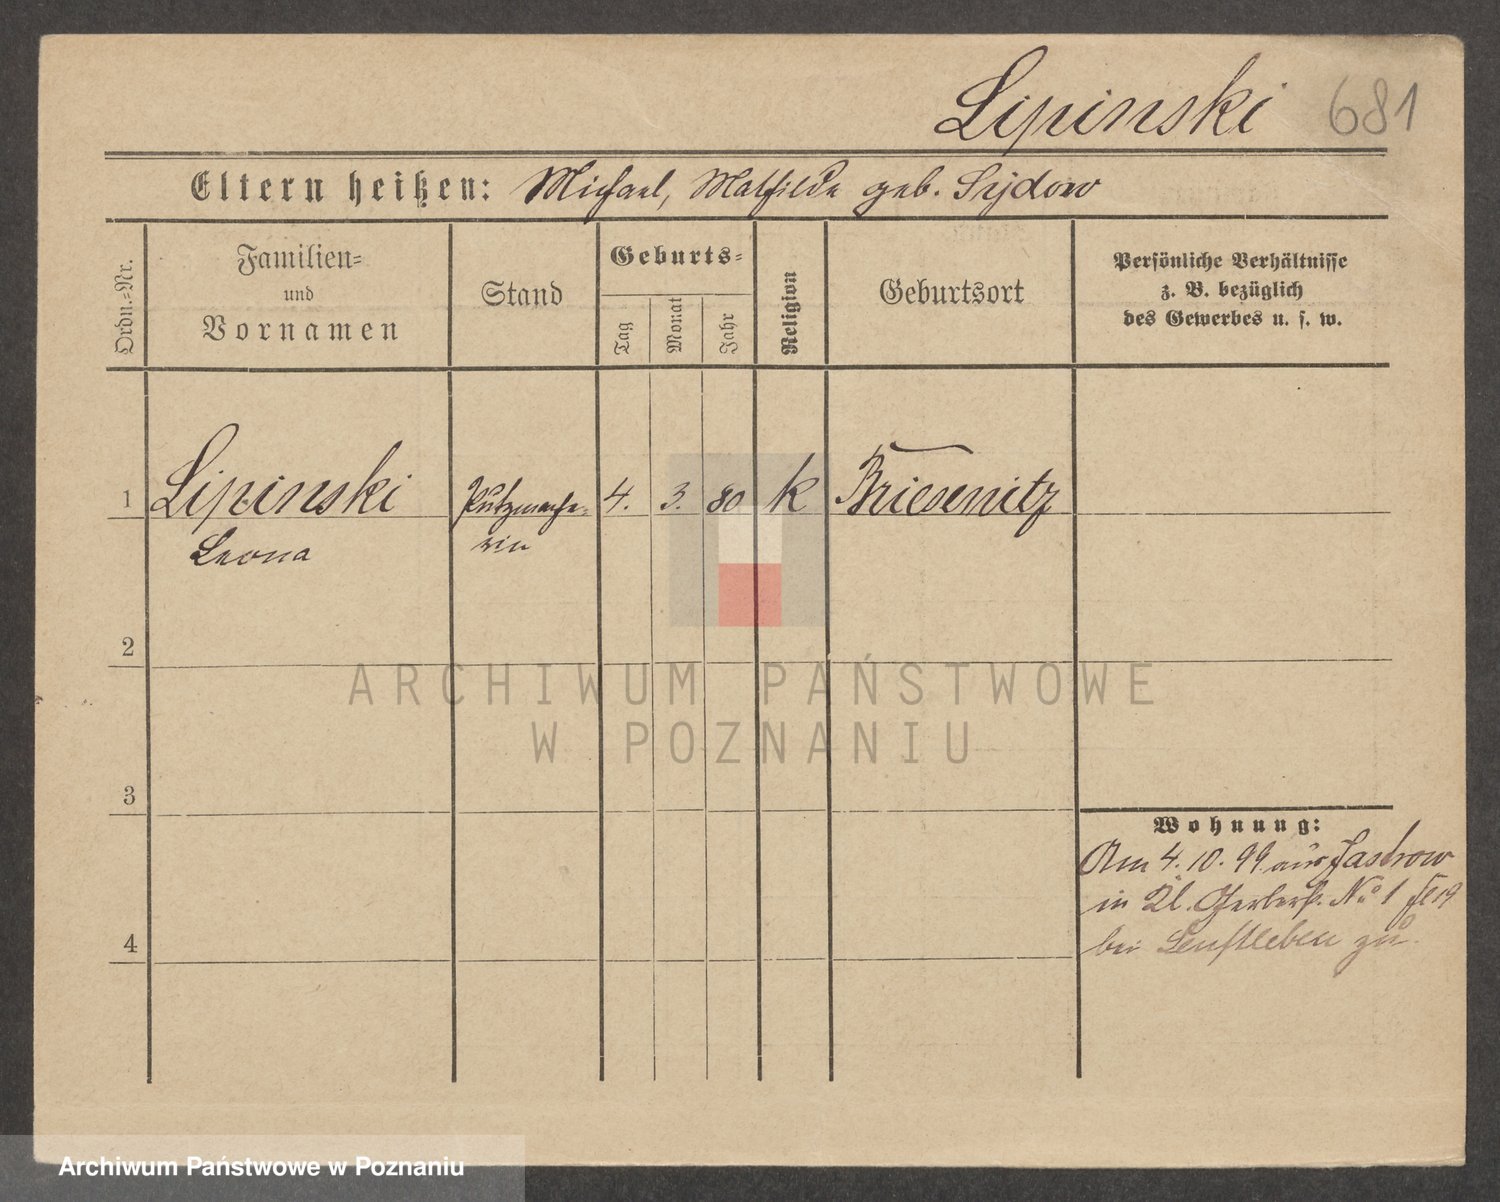 Lipinski 681
Eltern heißen: Michael, Mathilde geb. Sydow
Ordn.=Nr.
Familien=
und
Vornamen
Stand
Geburts=
Tag
Monat
Jahr
Religion
Geburtsort
Persönliche Verhältnisse
z. B. bezüglich
des Gewerbes u. s. w.
1 Lipinski Putzmache- 4. 3. 80 k Briesenitz
Leona rin
2
ARCHIWUM PAŃSTWOWE
W POZNANIU
3
Wohnung:
Am 4.10.99 aus Jastrow
in Kl. Gerberstr. No 1
4
bei zu.
Archiwum Państwowe w Poznaniu